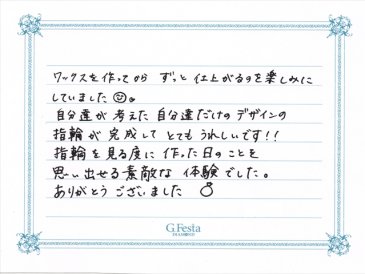 ワックスを作ってから ずっと 仕上がるのを楽しみに
していました☺。
自分達が 考えた 自分達だけの デザインの
指輪が 完成して とても うれしいです!!
指輪を見る度に 作った日のことを
思い出せる素敵な 体験でした。
ありがとう ございました
G.Festa
DIAMOND